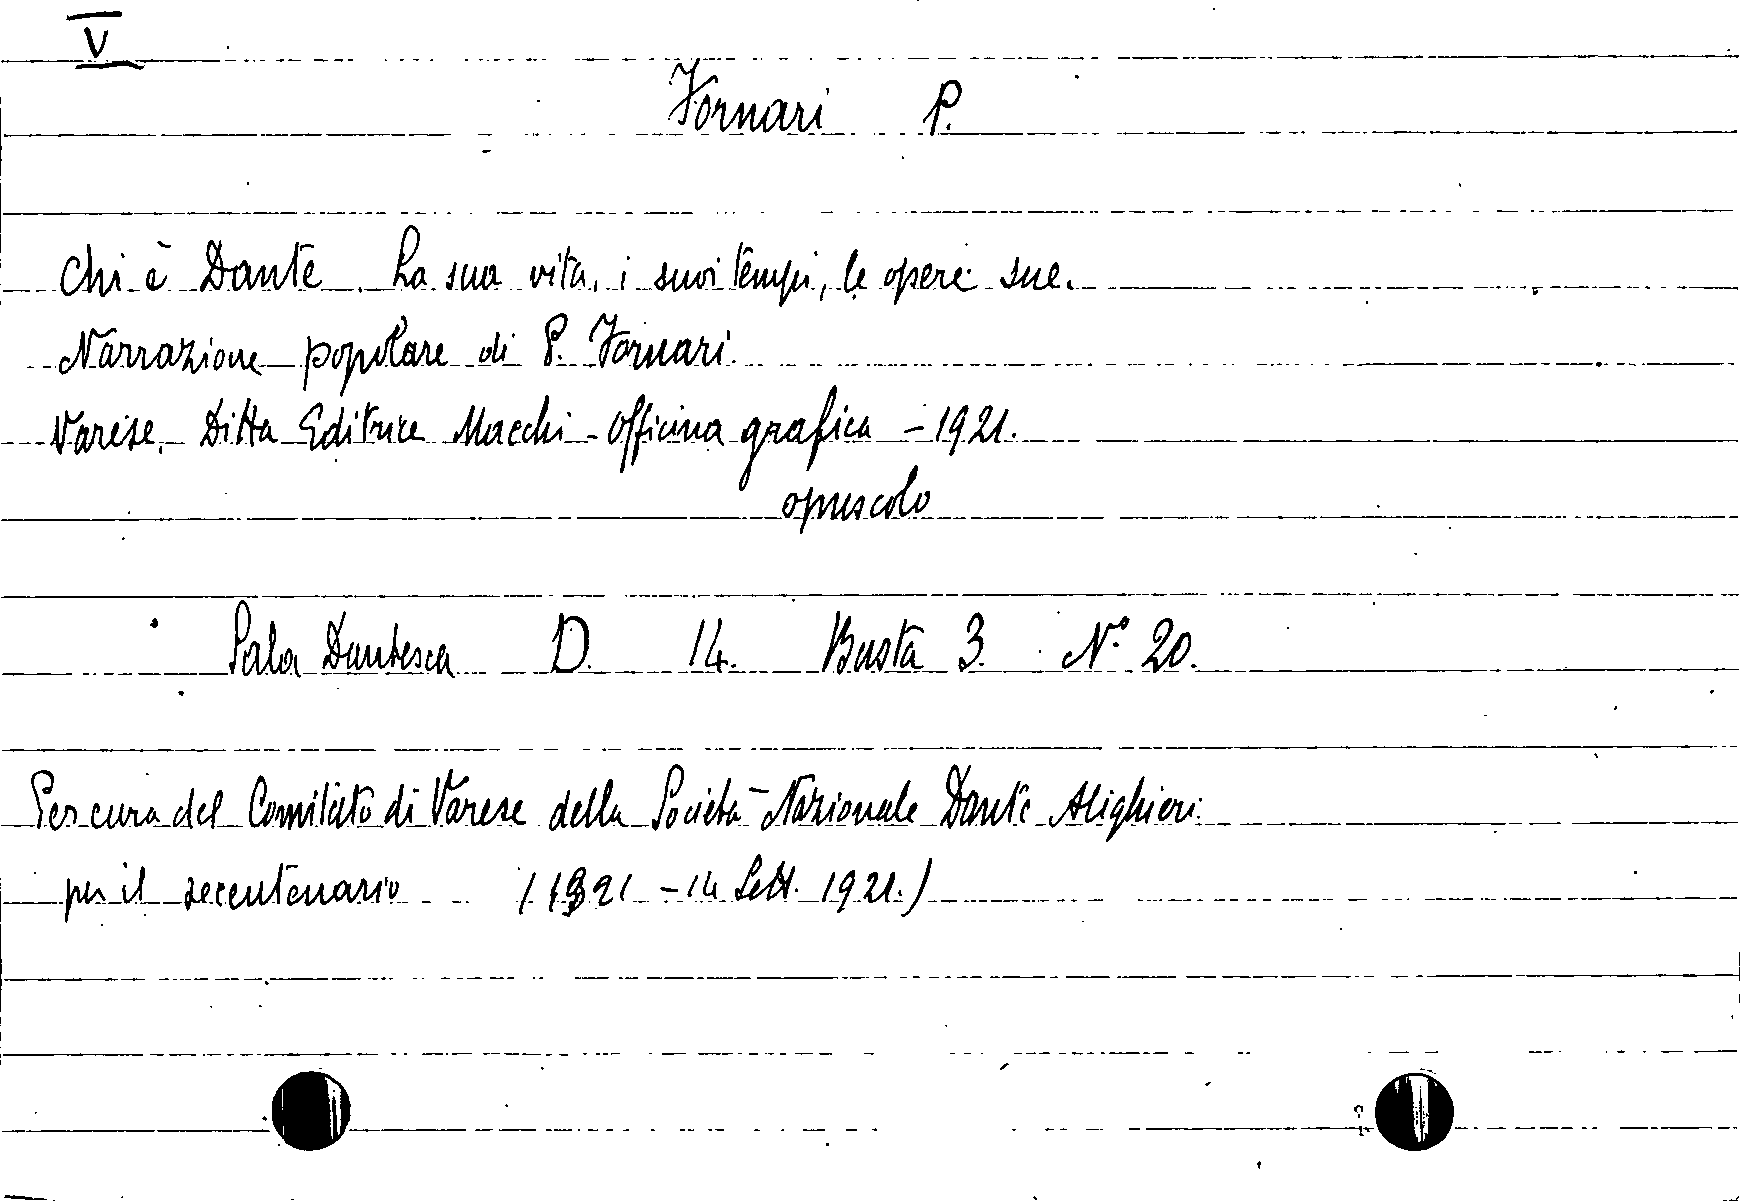 V
Fornari P.
Chi è Dante. La sua vita, i suoi tempi, le opere sue.
Narrazione popolare di P. Fornari.
Varese. Ditta Editrice Macchi - Officina grafica - 1921.
opuscolo
Sala Dantesca D. 14. Busta 3. N.º 20.
Per cura del Comitato di Varese della Società Nazionale Dante Alighieri
per il secentenario (1321 - 14 Sett. 1921.)